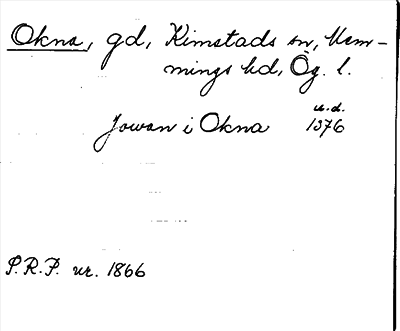 Okna, gd, Kimstads sn, Mem-
mings hd, Ög. l.
u.d.
Jowan i Okna 1376
P.R.P. nr. 1866